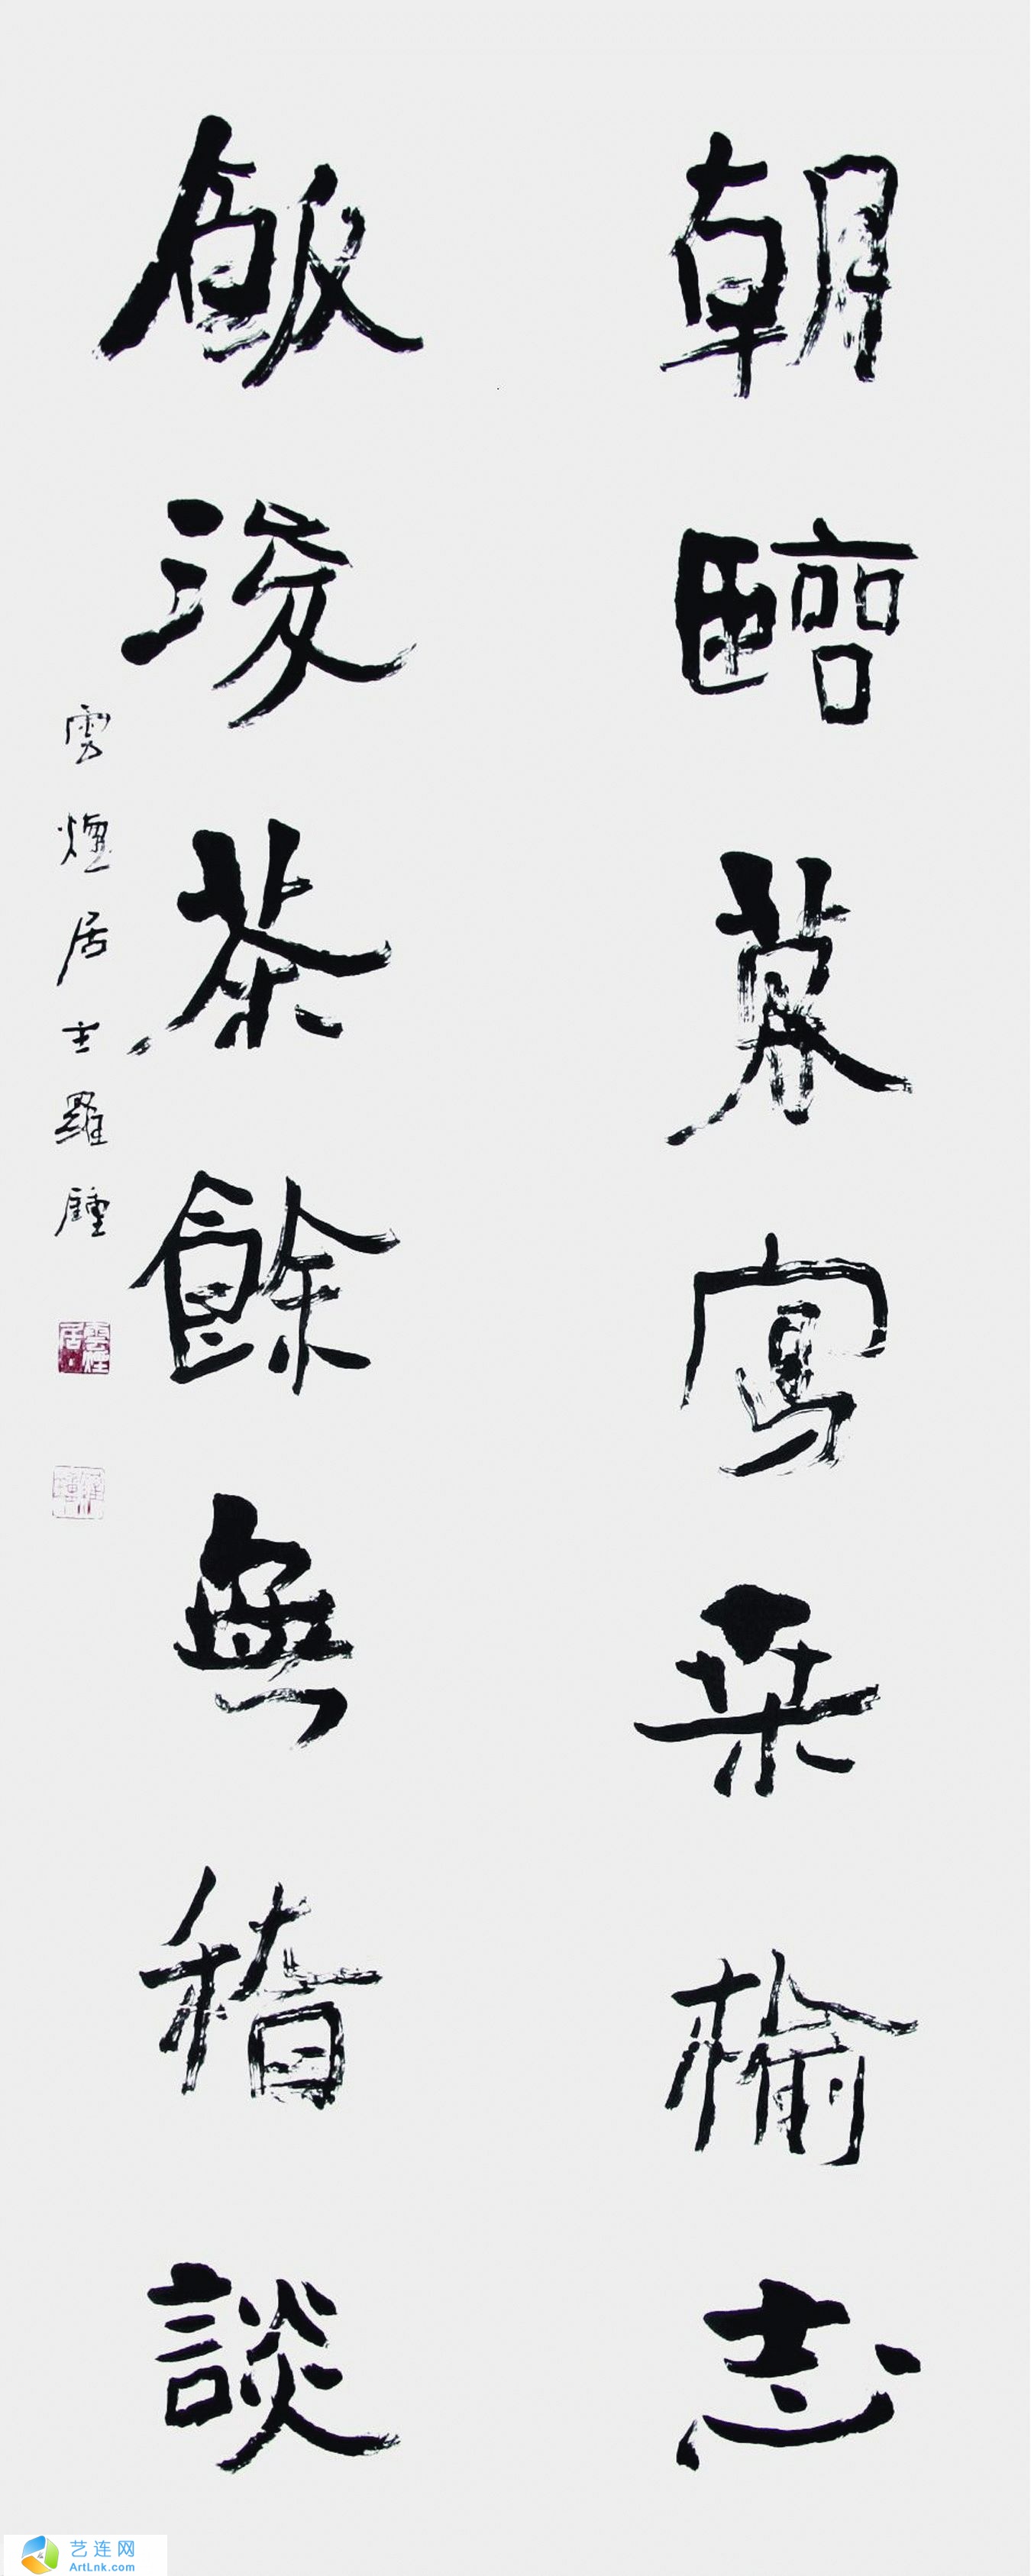 朝臨暮寫桑榆志
飯後茶餘無稽談
雲煙居士羅鍾
雲煙居
艺连网
ArtLnk.com